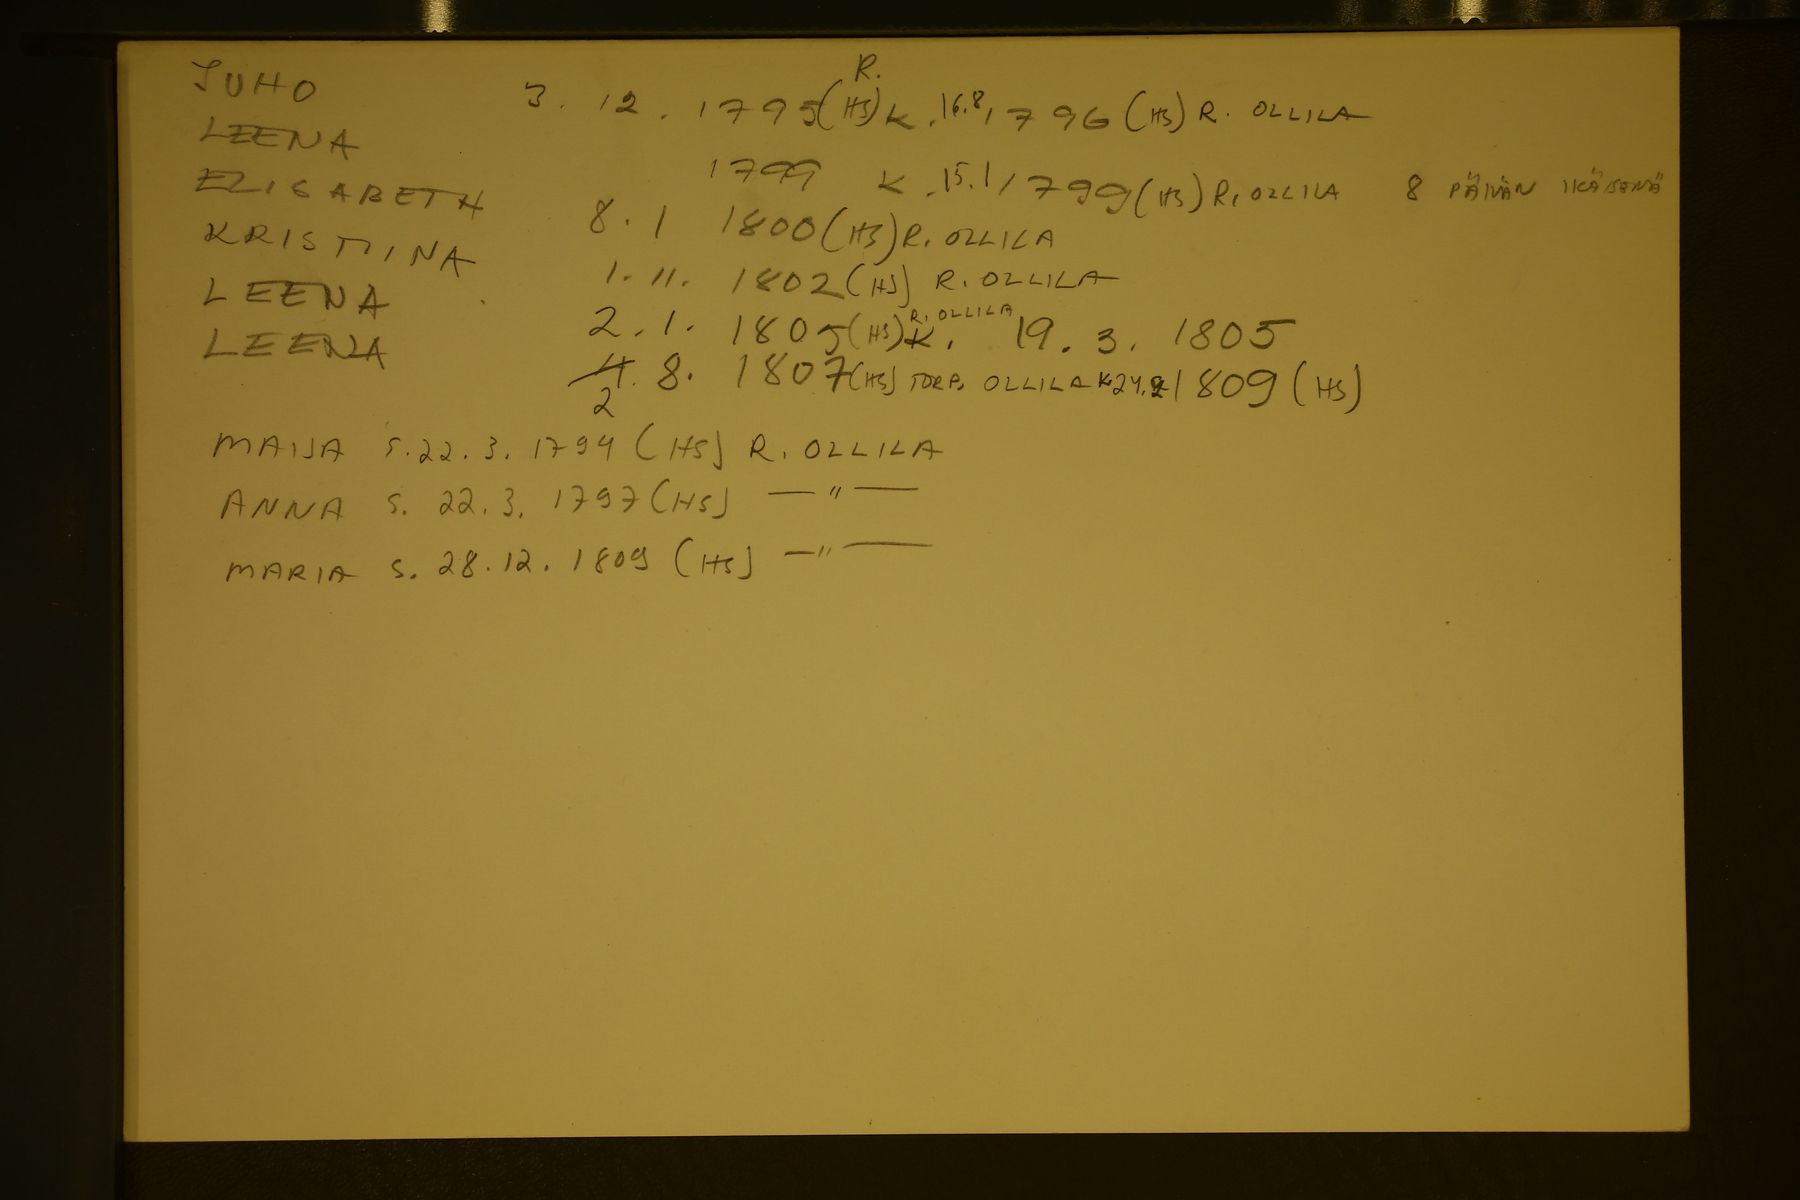 R.
JUHO 3. 12. 1795 (HS) K. 16.8. 1796 (HS) R. OLLILA
LEENA 1799 K. 15.1. 1799 (HS) R. OLLILA 8 PÄIVÄN IKÄISENÄ
ELISABETH 8. 1 1800 (HS) R. OLLILA
KRISTIINA 1. 11. 1802 (HS) R. OLLILA
LEENA 2. 1. 1805 (HS) R. OLLILA K. 19. 3. 1805
LEENA 4. 8. 1807 (HS) TORP. OLLILA K 24.2 1809 (HS)
2
MAIJA S. 22. 3. 1794 (HS) R. OLLILA
ANNA S. 22. 3. 1797 (HS) — " —
MARIA S. 28. 12. 1809 (HS) — " —